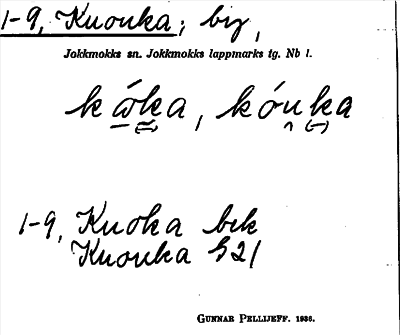 1-9, Kuouka; by,
Jokkmokks sn. Jokkmokks lappmarks tg. Nb l.
kåka, kóuka
1-9, Kuoka bek
Kuouka S21
GUNNAR PELLIJEFF. 1936.